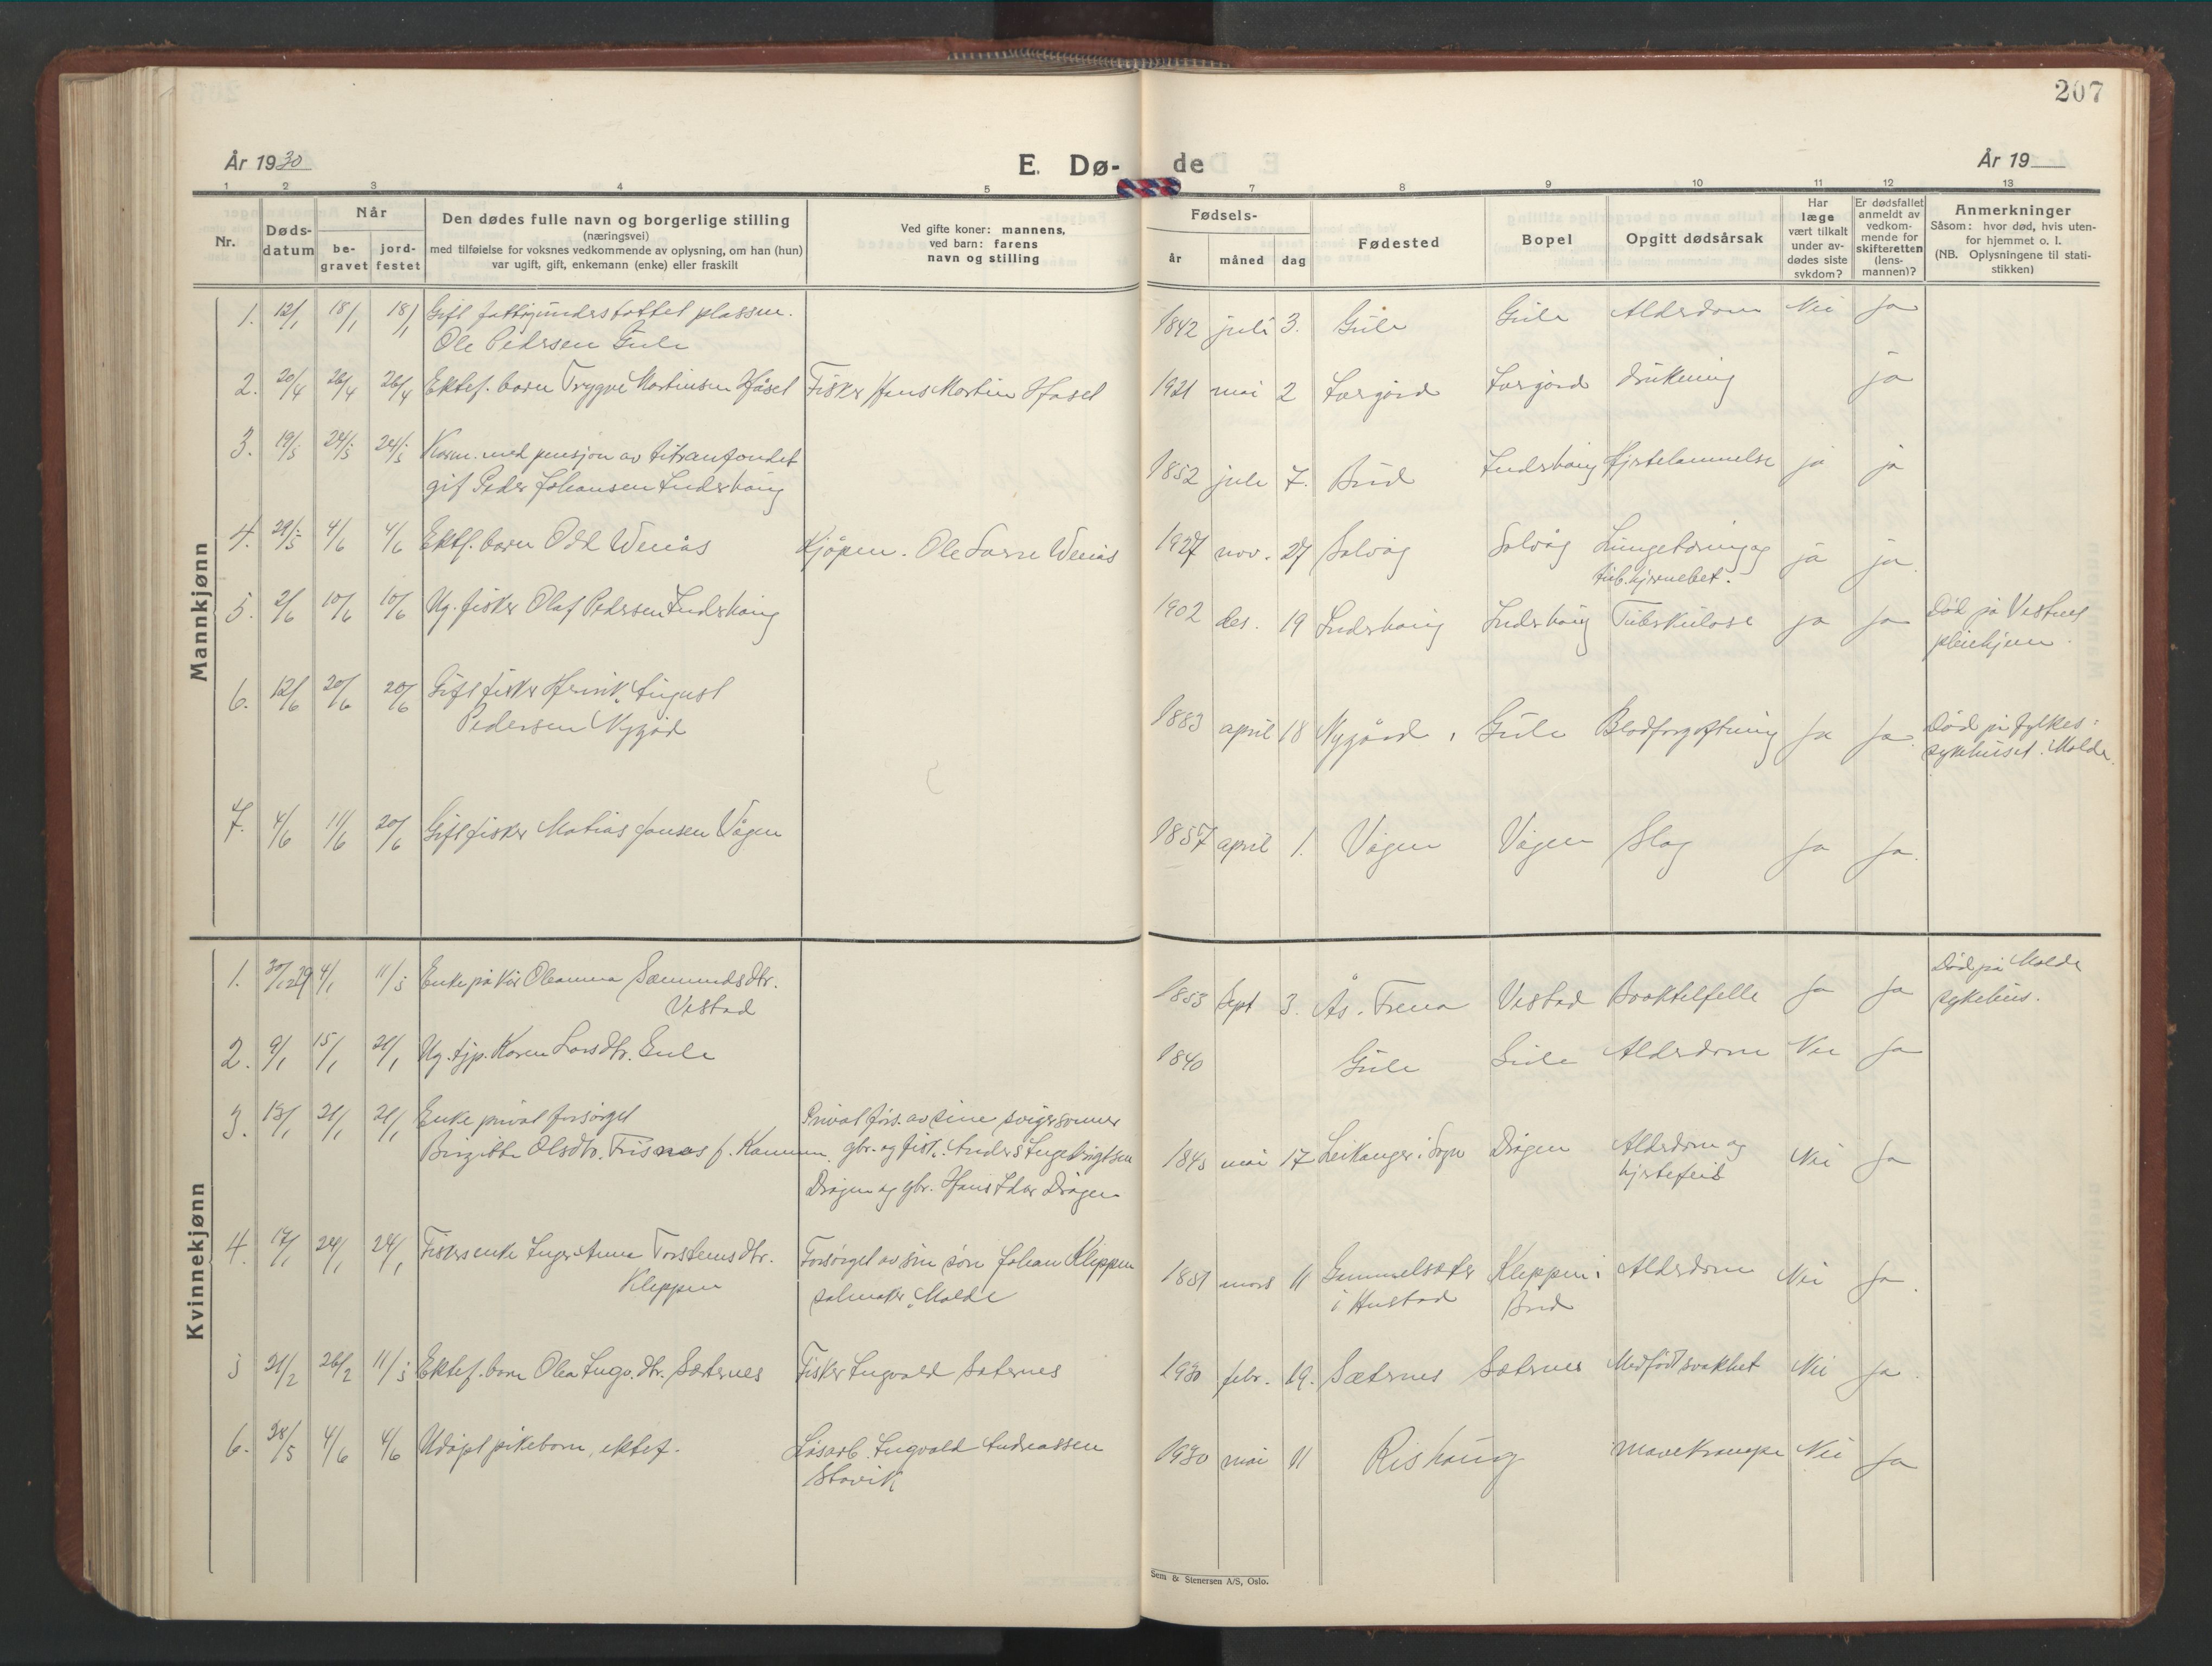 207
År 1930
E. Dø-
de
År 19
1 2 3 4 5 7 8 9 10 11 12 13
Nr.
Døds-
datum
Når
be-
gravet
jord-
festet
Den dødes fulle navn og borgerlige stilling
(næringsvei)
med tilføielse for voksnes vedkommende av oplysning, om han (hun)
var ugift, gift, enkemann (enke) eller fraskilt
Ved gifte koner: mannens,
ved barn: farens
navn og stilling
Fødsels-
år
måned
dag
Fødested
Bopel
Opgitt dødsårsak
Har
læge
vært tilkalt
under av-
dødes siste
sykdom?
Er dødsfallet
anmeldt av
vedkom-
mende for
skifteretten
(lens-
mannen)?
Anmerkninger
Såsom: hvor død, hvis uten-
for hjemmet o. l.
(NB. Oplysningene til stati-
stikken)
Mannkjønn
1. 12/1 18/1 18/1 Gift fattigunderstøttet plassm. 1842 juli 3. Gule Gule Alderdom Nei Ja
Ole Pedersen Gule
2. 20/4 26/4 26/4 Ektef. barn Trygve Martinsen Håsel Fisker Hans Martin Hasel 1921 mai 2 drukning ja
3. 19/5 24/5 24/5 med pensjon av titranfondet 1852 juli 7. Bud Inderhaug Hjertelammelse ja ja
gif Peder Johansen Inderhaug
4. 29/5 4/6 4/6 Ektf. barn Odd Wenås Kjøpm. Ole Wenås 1927 nov. 27 Solvåg Solvåg Lungebetændelse og ja ja
tub. hjernebet.
5. 2/6 10/6 10/6 Ug. fisker Olaf Pedersen Inderhaug 1902 des. 19 Inderhaug Inderhaug Tuberkulose ja Ja Død på Vestnes
pleiehjem.
6. 12/6 20/6 20/6 Gift fisker Henrik August 1883 april 18 Nygård, Gule Blodforgiftning Ja Ja Død på fylkes-
Pedersen Nygård sykehuset. Molde.
7. 4/6 11/6 20/6 Gift fisker Matias Jansen Vågen 1857 april 1. Vågen Vågen Slag Ja Ja.
Kvinnekjønn
1. 4/1 11/5 Enke på kår Oleanna Sæmundsdtr. 1853 Sept 3. Ås. Fræna Vestad Ja Ja Død på Molde
Vestad sykehus.
2. 9/1 15/1 21/1 Ug. tjp. Karen Larsdtr. Gule 1840 Gule Gule Alderdom Nei Ja
3. 13/1 21/1 21/1 Enke privat forsørget Privat fors. av sine svigersønner
Birgitte Olsdtr. Trisnes f. gbr. og fisk. Anders Ingebrigtsen 1843 mai 17 Leikanger i Sogn Drågen Alderdom og Nei Ja
Drågen og gbr. Hans Drågen hjertefeil
4. 17/1 24/1 24/1 Fiskersenke Inger Anna Torsteinsdtr. Forsørget av sin søn Johan Kleppen 1851 mars 11 Gammelsæter Kleppen i Alderdom Nei Ja.
Kleppen salmaker, Molde i Hustad Bud
5 21/2 26/2 11/5 Ektef. barn Olea Ingv. dtr. Sæternes Fisker Ingvald Sæternes 1930 febr. 19. Sæternes Sæternes Medfødt svakhet Nei Ja.
6. 28/5 4/6 4/6 Udøpt pikebarn, ektef. Løsarb. Ingvald Andreassen 1930 mai 11 Rishaug Mavekrampe Nei Ja
Stavik
Sem & Stenersen A/S, Oslo.